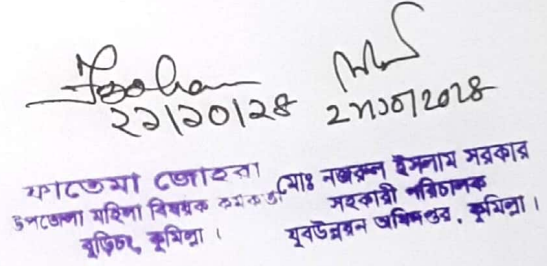 ২১/১০/২৪
ফাতেমা জোহরা
উপজেলা মহিলা বিষয়ক কর্মকর্তা
বুড়িচং, কুমিল্লা ।
মোঃ নজরুল ইসলাম সরকার
সহকারী পরিচালক
যুবউন্নয়ন অধিদপ্তর, কুমিল্লা ।